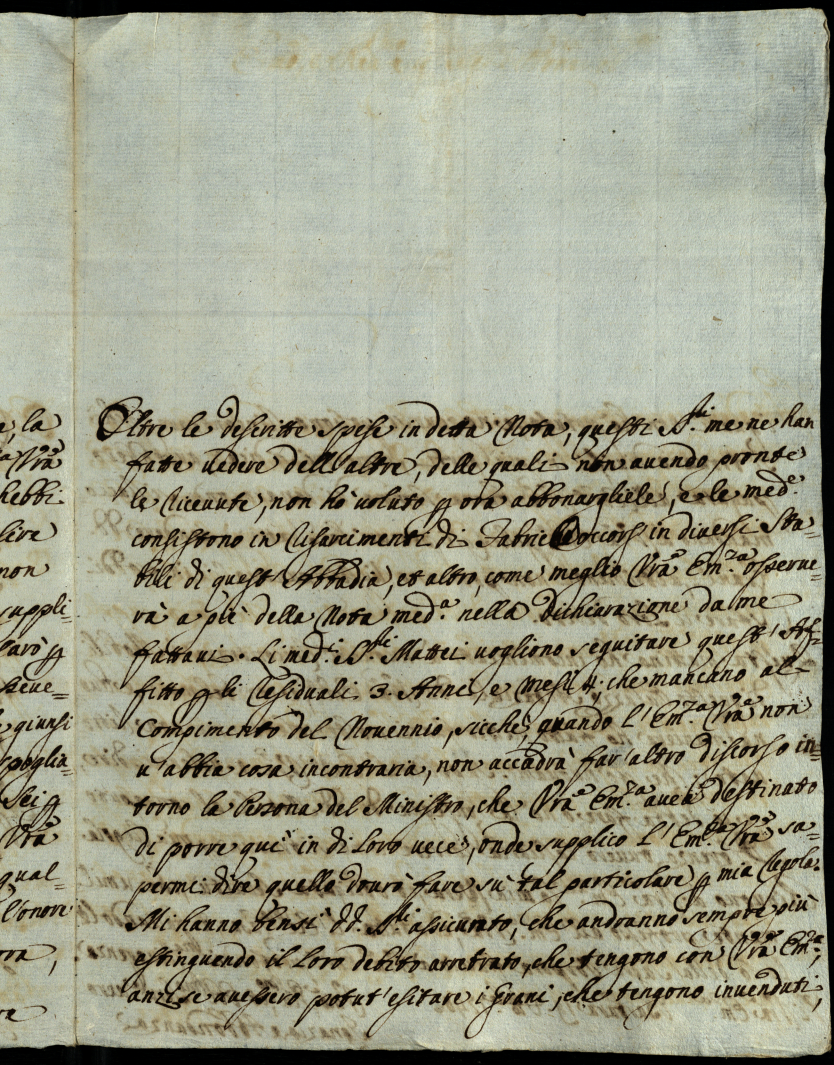 Oltre le descritte spese in detta Nota, questi SS.ri me ne han
fatte uedere dell'altre, delle quali non auendo pronte
le riceuute, non hò uoluto p ora abbonargliele, e le med.e
consistono in risarcimenti di Fabriche occorsi in diuersi Sta-
bili di quest'Abbadia, et altro, come meglio Vrã Em.za osserue-
rà a piè della Nota med.a nella Dichiarazione da me
fattaui. Li med.i SS.ri Mattei uogliono seguitare quest'Af-
fitto p li residuali 3. Anni, e Mesi 4., che mancano al
Compimento del Nouennio, sicche, quando l'Em.za Vrã non
u'abbia cosa incontraria, non accadrà far'altro discorso in-
torno la Persona del Ministro, che Vrã Em.za auea destinato
di porre quì in di loro uece, onde supplico l'Em.za Vrã sa-
permi dire quello dourò fare sù tal particolare p mia regola.
Mi hanno bensì dd. SS.ri assicurato, che andranno sempre più
estinguendo il loro debito arretrato, che tengono con Vrã Em.za,
anzi se auessero potut'esitare i Grani, che tengono inuenduti,
la
Vrã
hebbi
lire
non
suppli-
larò p
giunsi
spoglia-
sei p
Vrã
qual-
l'onore